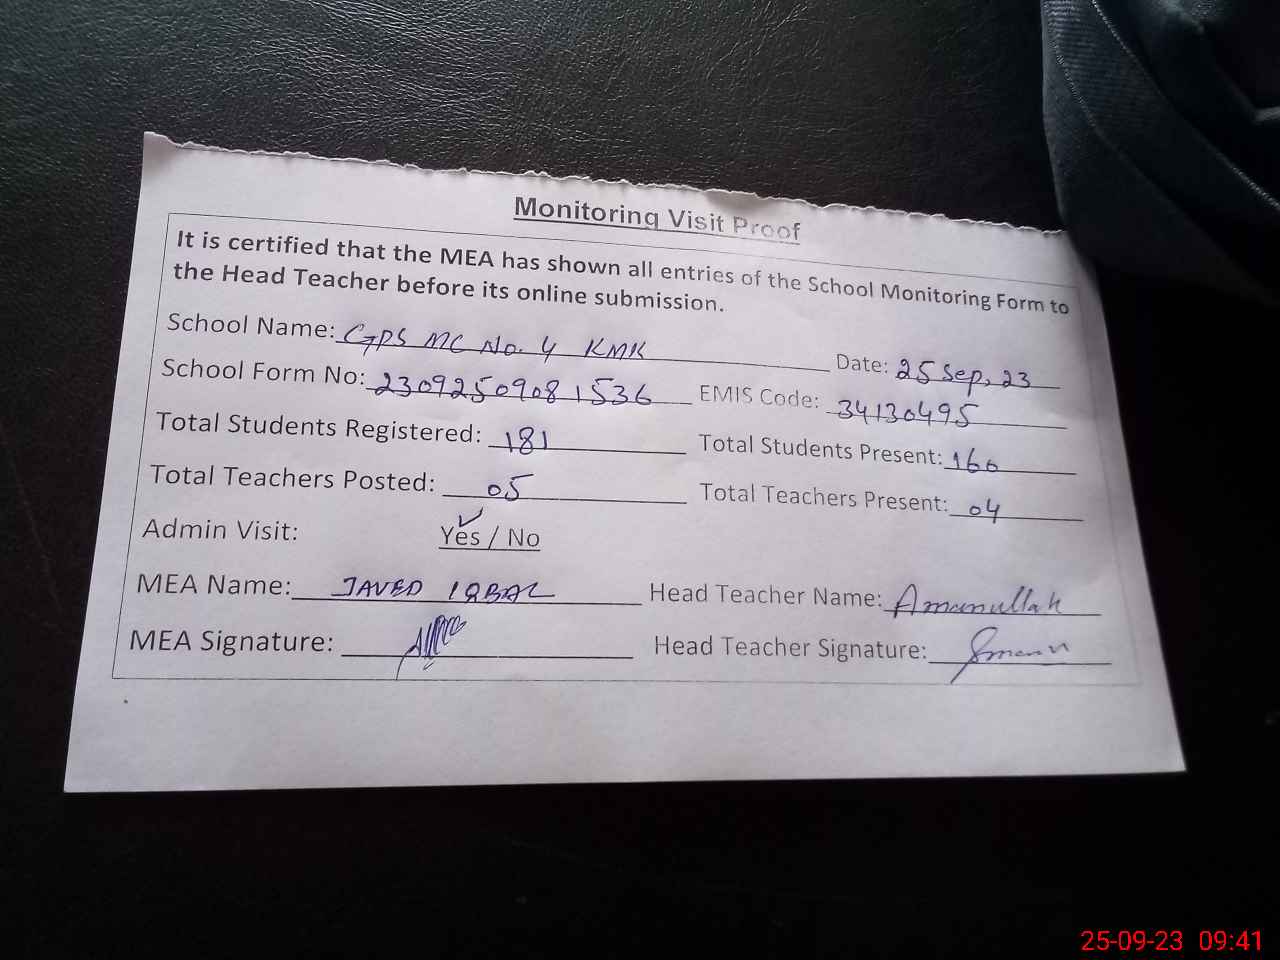 Monitoring Visit Proof
It is certified that the MEA has shown all entries of the School Monitoring Form to
the Head Teacher before its online submission.
School Name: GPS MC No. 4 KMK Date: 25 Sep, 23
School Form No: 2309250908 1536 EMIS Code: 34130495
Total Students Registered: 181 Total Students Present: 160
Total Teachers Posted: 05 Total Teachers Present: 04
Admin Visit: Yes / No
MEA Name: JAVED IQBAL Head Teacher Name: Amanullah
MEA Signature: Head Teacher Signature:
25-09-23 09:41